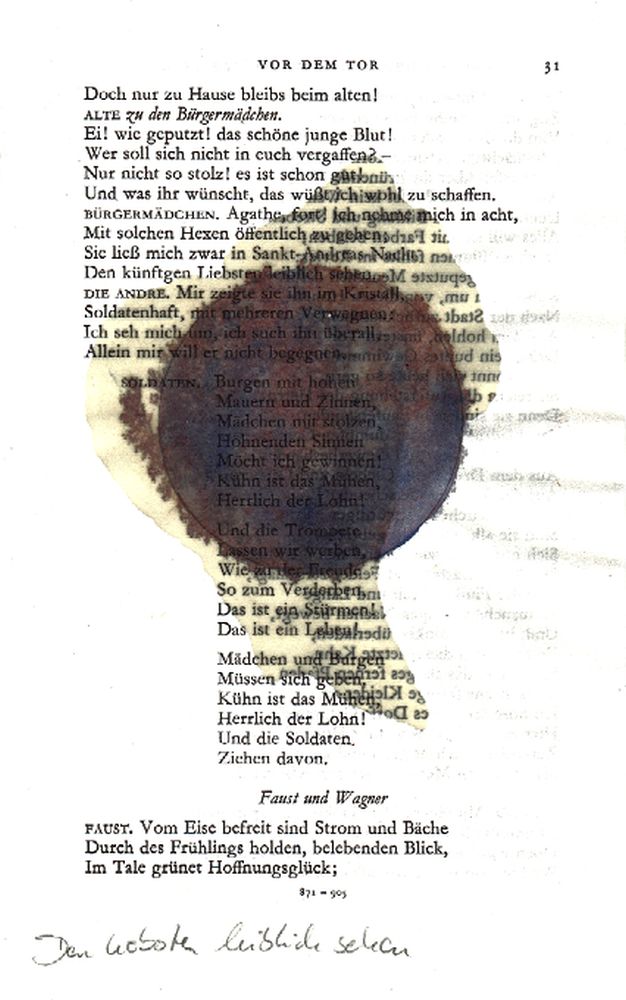 VOR DEM TOR 31
Doch nur zu Hause bleibs beim alten!
ALTE zu den Bürgermädchen.
Ei! wie geputzt! das schöne junge Blut!
Wer soll sich nicht in euch vergaffen? –
Nur nicht so stolz! es ist schon gut!
Und was ihr wünscht, das wüßt ich wohl zu schaffen.
BÜRGERMÄDCHEN. Agathe, fort! ich nehme mich in acht,
Mit solchen Hexen öffentlich zu gehen;
Sie ließ mich zwar in Sankt-Andreas-Nacht
Den künftgen Liebsten leiblich sehen.
DIE ANDRE. Mir zeigte sie ihn im Kristall,
Soldatenhaft, mit mehreren Verwegnen;
Ich seh mich um, ich such ihn überall,
Allein mir will er nicht begegnen.
SOLDATEN. Burgen mit hohen
Mauern und Zinnen,
Mädchen mit stolzen,
Höhnenden Sinnen
Möcht ich gewinnen!
Kühn ist das Mühen,
Herrlich der Lohn!
Und die Trompete
Lassen wir werben,
Wie zu der Freude,
So zum Verderben.
Das ist ein Stürmen!
Das ist ein Leben!
Mädchen und Burgen
Müssen sich geben.
Kühn ist das Mühen,
Herrlich der Lohn!
Und die Soldaten
Ziehen davon.
Faust und Wagner
FAUST. Vom Eise befreit sind Strom und Bäche
Durch des Frühlings holden, belebenden Blick,
Im Tale grünet Hoffnungsglück;
871 – 905
Den liebsten leiblich sehen